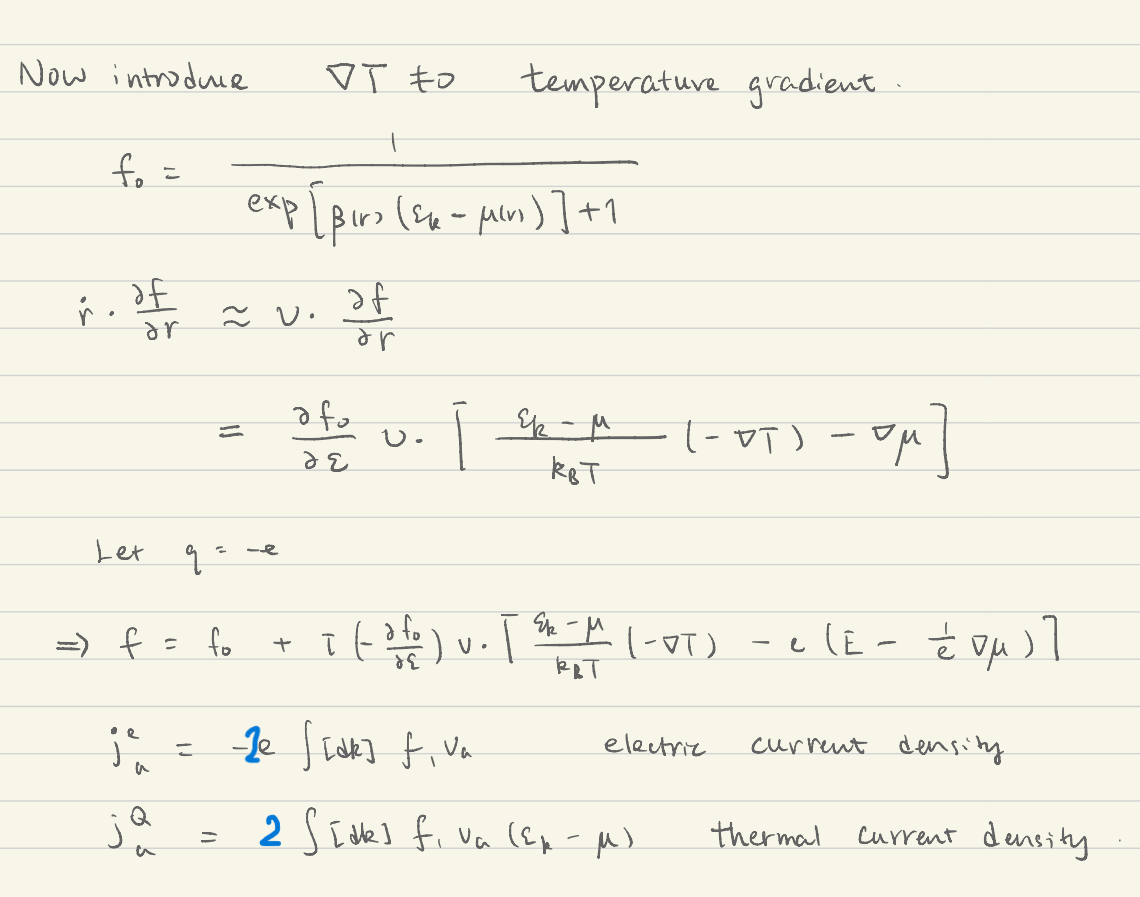 Now introduce ∇T ≠ 0 temperature gradient.
f₀ = 1 / (exp[β(r)(εₖ - μ(r))] + 1)
ṙ · ∂f/∂r ≈ v · ∂f/∂r
= ∂f₀/∂ε v · [(εₖ - μ)/(k_B T) (-∇T) - ∇μ]
Let q = -e
⇒ f = f₀ + τ(-∂f₀/∂ε) v · [(εₖ - μ)/(k_B T) (-∇T) - e(E - 1/e ∇μ)]
jᵉₐ = -2e ∫[dk] f₁ vₐ electric current density
j^Qₐ = 2 ∫[dk] f₁ vₐ (εₖ - μ) thermal current density.